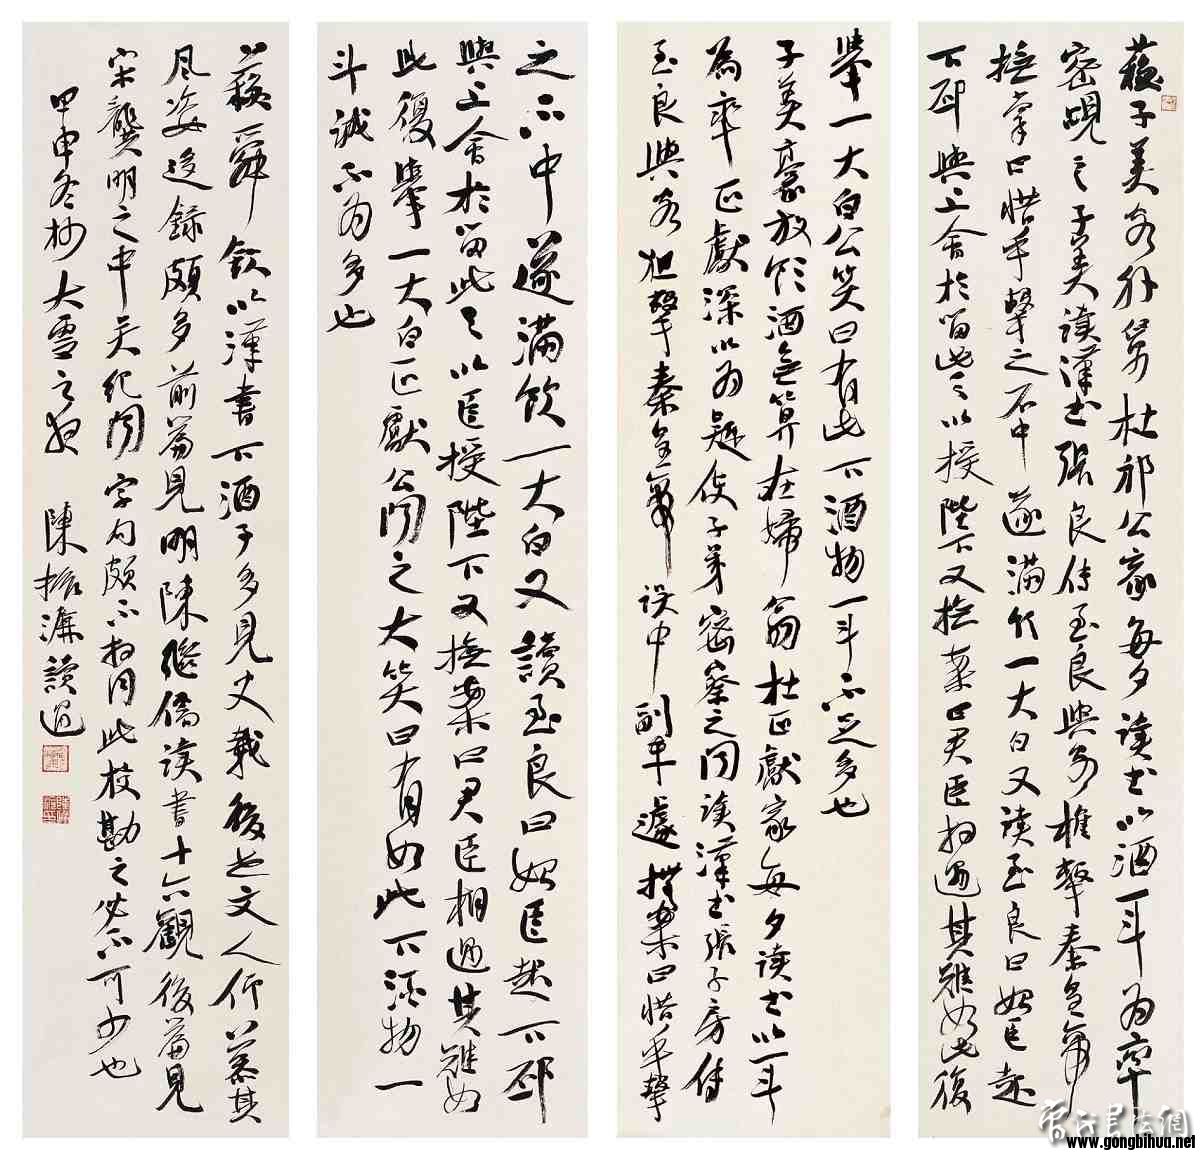 蘇子美客外舅杜祁公家每夕讀書以酒一斗為率
密覘之子美讀漢書張良傳至良與客椎擊秦皇帝
撫掌曰惜乎擊之不中遂滿飲一大白又讀至良曰始臣起
下邳與上會於留此天以授陛下又撫案曰君臣相遇其難如此復
舉一大白公笑曰有此下酒物一斗不足多也
子美豪放飲酒無算在婦翁杜正獻家每夕讀書以一斗
為率正獻深以為疑使子弟密察之聞讀漢書張子房傳
至良與客狙擊秦皇帝誤中副車遽撫案曰惜乎擊
之不中遂滿飲一大白又讀至良曰始臣起下邳
與上會於留此天以臣授陛下又撫案曰君臣相遇其難如
此復舉一大白正獻公聞之大笑曰有如此下酒物一
斗誠不為多也
蘇舜欽以漢書下酒子多見史載後世文人仰慕其
風姿逡録頗多前篇見明陳繼儒讀書十六觀後篇見
宋龔明之中吳紀聞字句頗不相同此校勘之必不可少也
甲申冬杪大雪之夜 陳振濂讀過
www.gongbihua.net